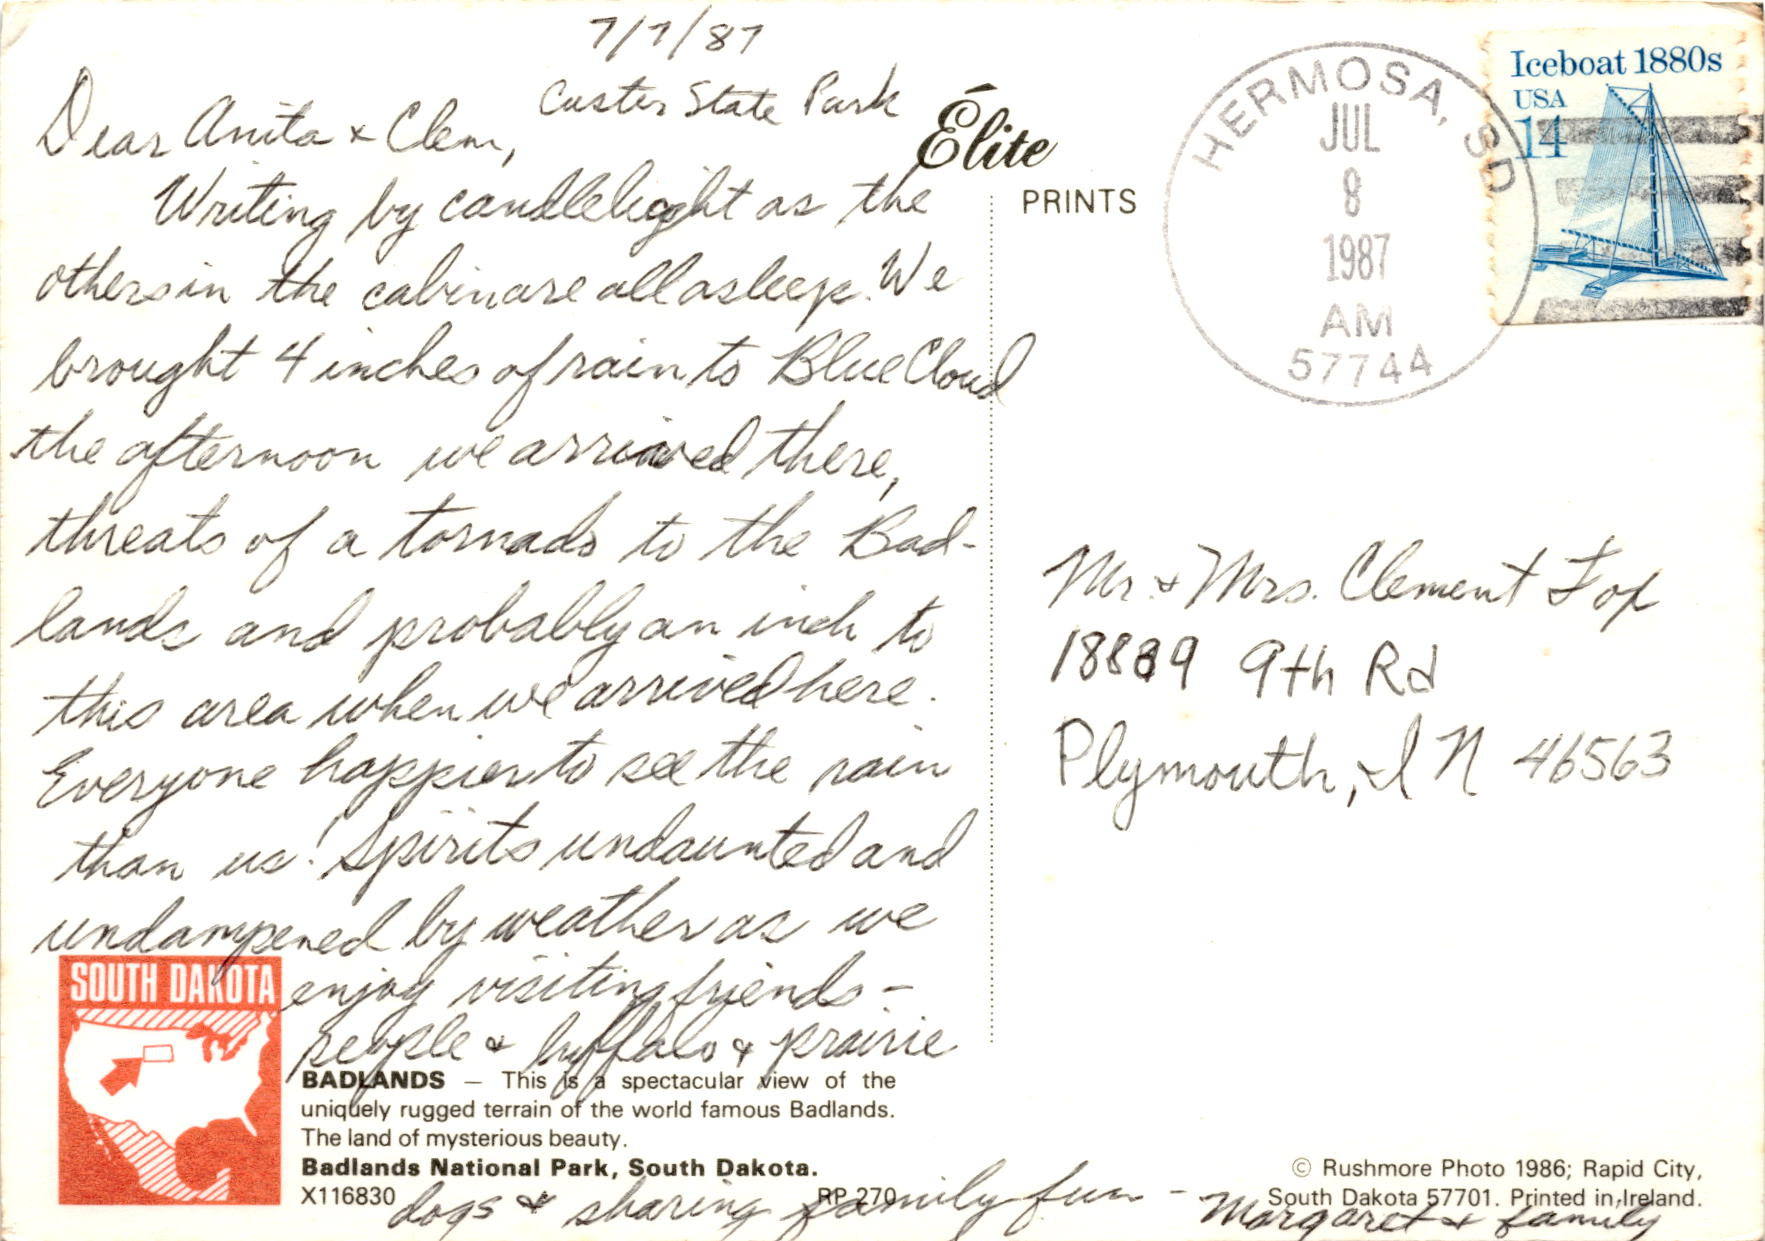 7/7/87
Custer State Park
Dear Anita & Clem,
Writing by candlelight as the
others in the cabin are all asleep. We
brought 4 inches of rain to Blue Cloud
the afternoon we arrived there,
threats of a tornado to the Bad-
lands and probably an inch to
this area when we arrived here.
Everyone happier to see the rain
than us! Spirits undaunted and
undampened by weather as we
enjoy visiting friends -
people & buffalo & prairie
dogs & sharing family fun - Margaret & family
Élite
PRINTS
HERMOSA, SD
JUL
8
1987
AM
57744
Iceboat 1880s
USA
14
Mr. & Mrs. Clement Fox
18889 9th Rd
Plymouth, IN 46563
SOUTH DAKOTA
BADLANDS — This is a spectacular view of the
uniquely rugged terrain of the world famous Badlands.
The land of mysterious beauty.
Badlands National Park, South Dakota.
X116830 RP 270
© Rushmore Photo 1986; Rapid City,
South Dakota 57701. Printed in Ireland.